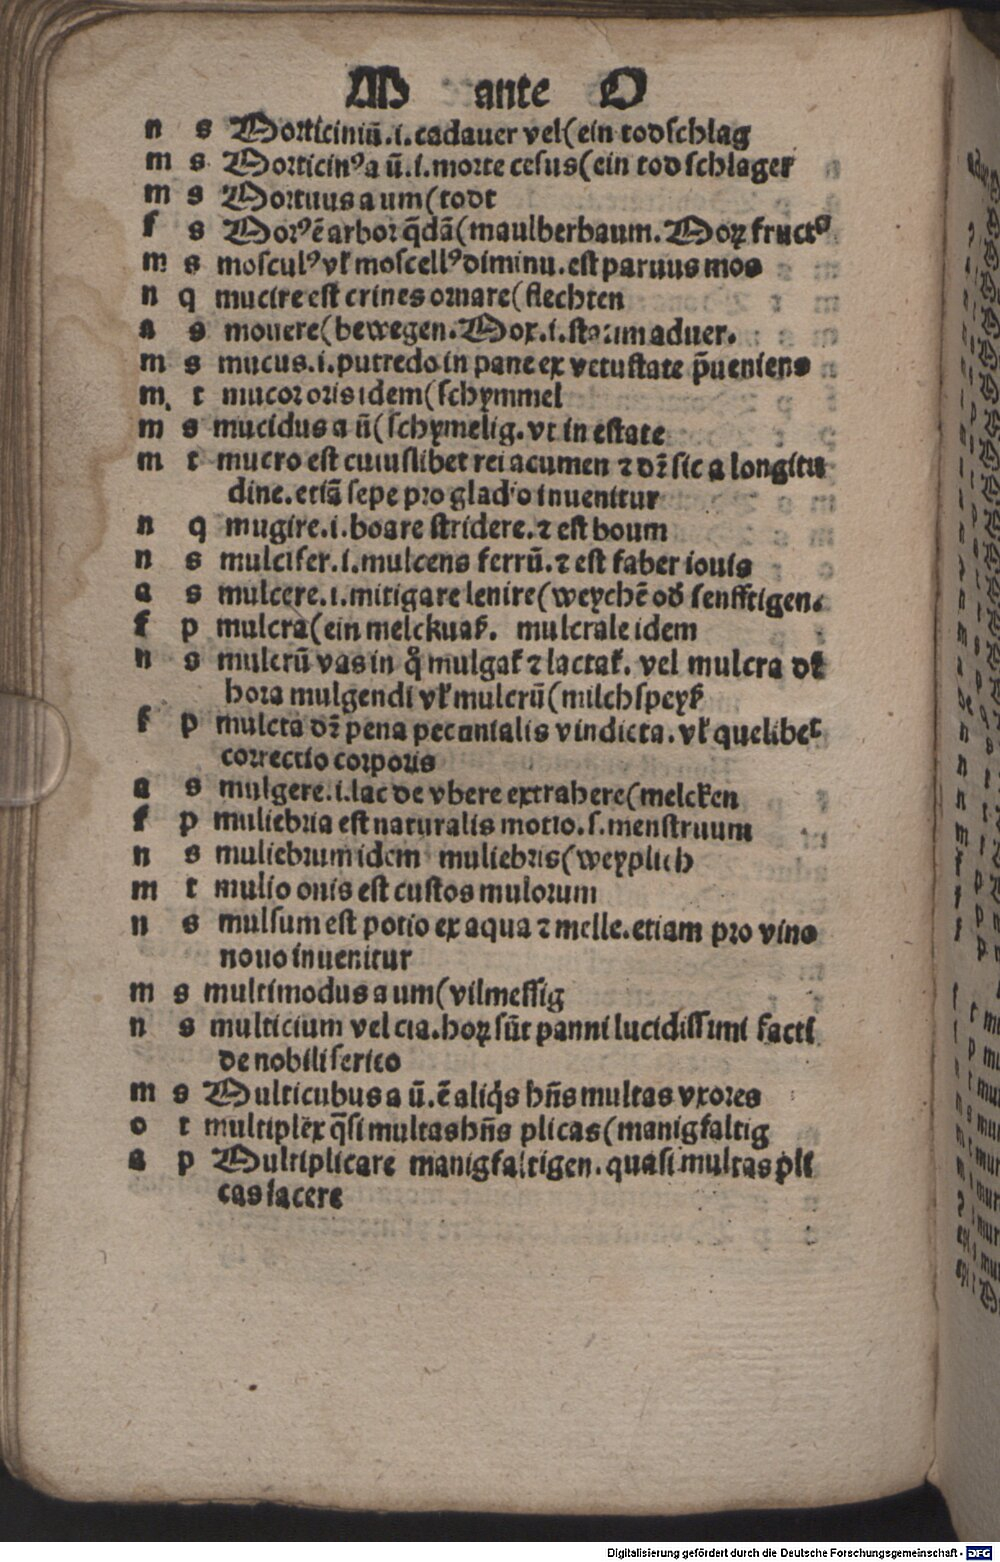 M ante O
n s Morticiniū.i.cadauer vel(ein todschlag
m s Morticinꝰ a ū.i.morte cesus(ein todschlager
m s Mortuus a um(todt
f s Morꝰ ē arbor q̄dā(maulberbaum.Moꝝ fructꝰ
m s mosculꝰ vł moscellꝰ diminu.est paruus mos
n q mucire est crines ornare(flechten
a s mouere(bewegen.Mox.i.statim aduer.
m s mucus.i.putredo in pane ex vetustate p̄ueniens
m t mucor oris idem(schymmel
m s mucidus a ū(schymelig.vt in estate
m t mucro est cuiuslibet rei acumen ⁊ dꝛ̄ sic a longitu
dine.etiā sepe pro gladio inuenitur
n q mugire.i.boare stridere.⁊ est boum
n s mulcifer.i.mulcens ferrū.⁊ est faber iouis
a s mulcere.i.mitigare lenire(weychē od̕ senfftigen.
f p mulcra(ein melckuaß. mulcrale idem
n s mulcrū vas in q̊ mulgať ⁊ lactať. vel mulcra dť
hora mulgendi vł mulcrū(milchspeyß
f p mulcta dꝛ̄ pena pecunialis vindicta.vł quelibet
correctio corporis
a s mulgere.i.lac de vbere extrahere(melcken
f p muliebria est naturalis motio.s.menstruum
n s muliebrum idem muliebris(weyplich
m t mulio onis est custos mulorum
n s mulsum est potio ex aqua ⁊ melle.etiam pro vino
nouo inuenitur
m s multimodus a um(vilmessig
n s multicium vel cia.hoꝝ sūt panni lucidissimi facti
de nobili serico
m s Multicubus a ū.ē aliq̄s hn̄s multas vxores
o t multiplex q̄si multas hn̄s plicas(manigfaltig
a p Multiplicare manigfaltigen.quasi multas pli
cas facere
Digitalisierung gefördert durch die Deutsche Forschungsgemeinschaft - DFG